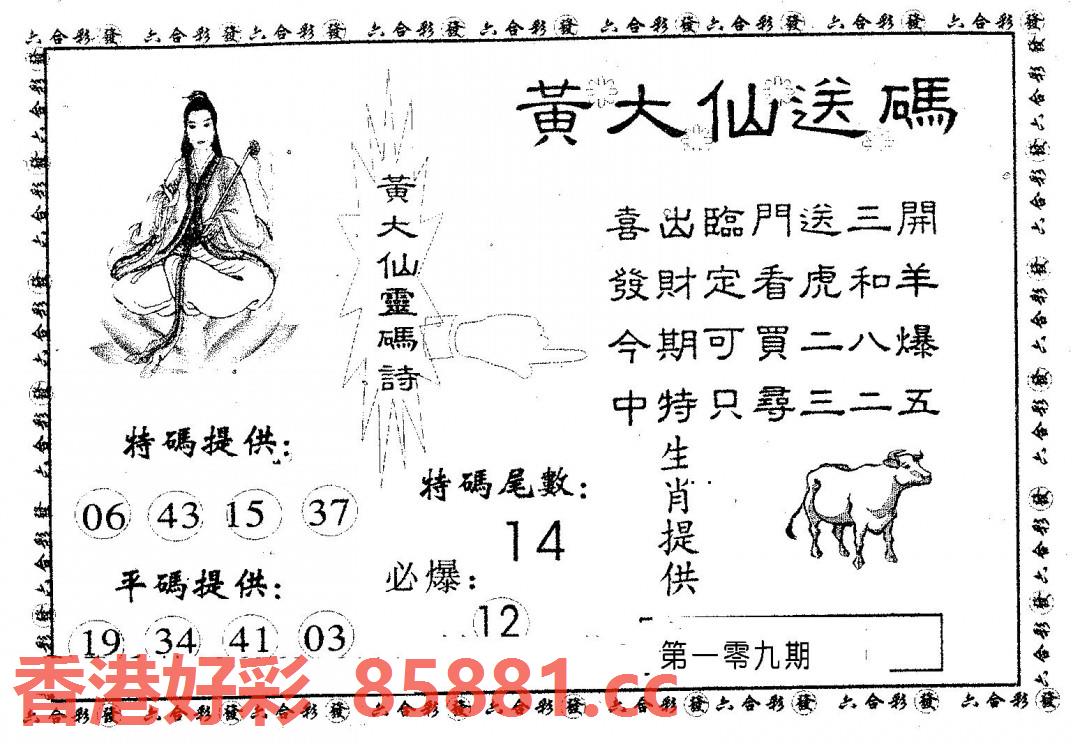 六合彩發 六合彩發六合彩發 六合彩發六合彩發 六合彩發六合彩發 六合彩發 六合彩發
黃大仙送碼
黃大仙靈碼詩
喜出臨門送三開
發財定看虎和羊
今期可買二八爆
中特只尋三二五
特碼提供:
06 43 15 37
特碼尾數:
14
生肖提供
平碼提供:
19 34 41 03
必爆:
12
第一零九期
香港好彩 85881.cc
六合彩發 六合彩發六合彩發 六合彩發六合彩發 六合彩發六合彩發 六合彩發 六合彩發